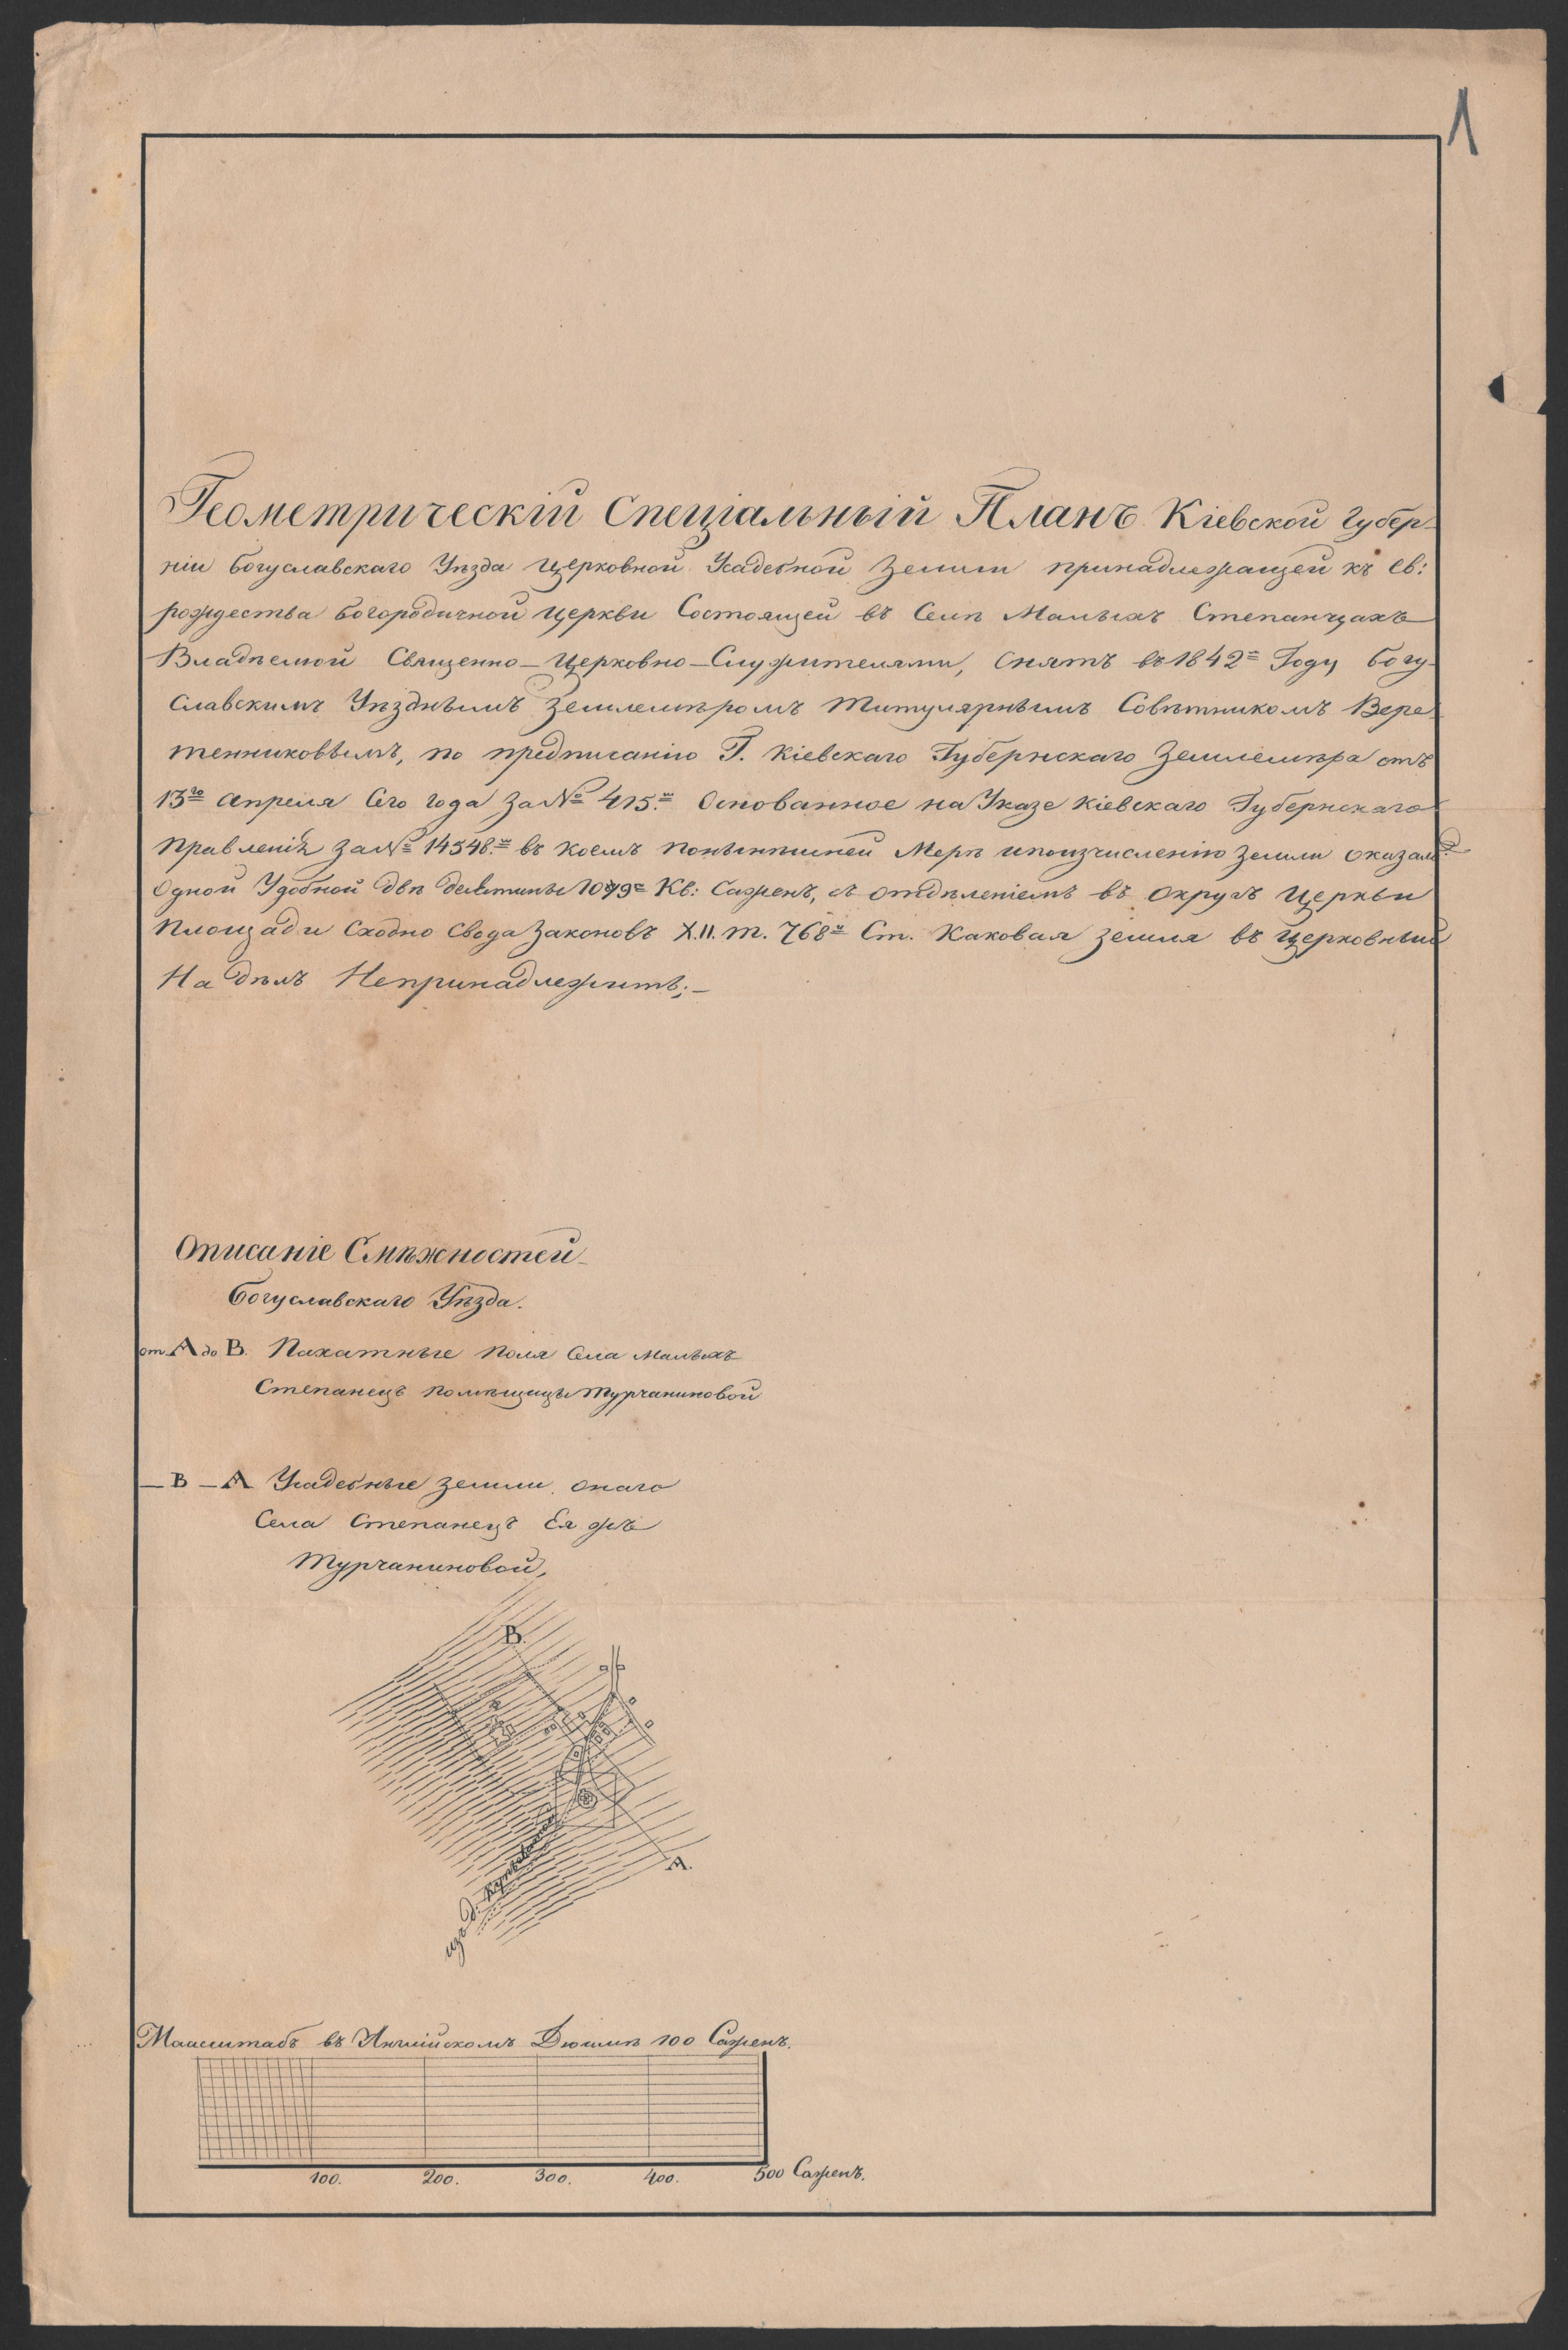 1
Геометрическій Спеціальный Планъ Кіевской Губер-
ніи Богуславскаго Уѣзда Церковной Усадебной Земли принадлежащей къ Св:
рождества Богородичной Церкви Состоящей въ Селѣ Малыхъ Степанцахъ
Владѣемой Священно-Церковно-Служителями, Снятъ въ 1842= Году Богу-
славскимъ Уѣзднымъ Землемѣромъ Титулярнымъ Совѣтникомъ Вере-
тенниковымъ, по предписанію Г. Кіевскаго Губернскаго Землемѣра отъ
13го апреля Сего года За № 415.м Основанное на Указе Кіевскаго Губернскаго
Правленія За № 14548.м въ Коемъ понынѣшней Мерѣ ипоизчисленію Земли оказалось
Одной Удобной двѣ десятины 1079= Кв: Саженъ, съ отдѣленіемъ въ округъ Церкви
Площади Сходно Свода Законовъ X.II. т. 768й Ст. Каковая Земля въ Церковный
Надѣлъ Непринадлежитъ;-
Описаніе Смѣжностей
Богуславскаго Уѣзда.
от. А до В. Пахатные Поля Села Малыхъ
Степанецъ помѣщицы Турчаниновой
— В — А Усадебные Земли онаго
Села Степанецъ Ея жъ
Турчаниновой,
В.
А.
изъ д.
Маасштабъ въ Англійскомъ Дюймѣ 100 Саженъ.
100. 200. 300. 400. 500 Саженъ.